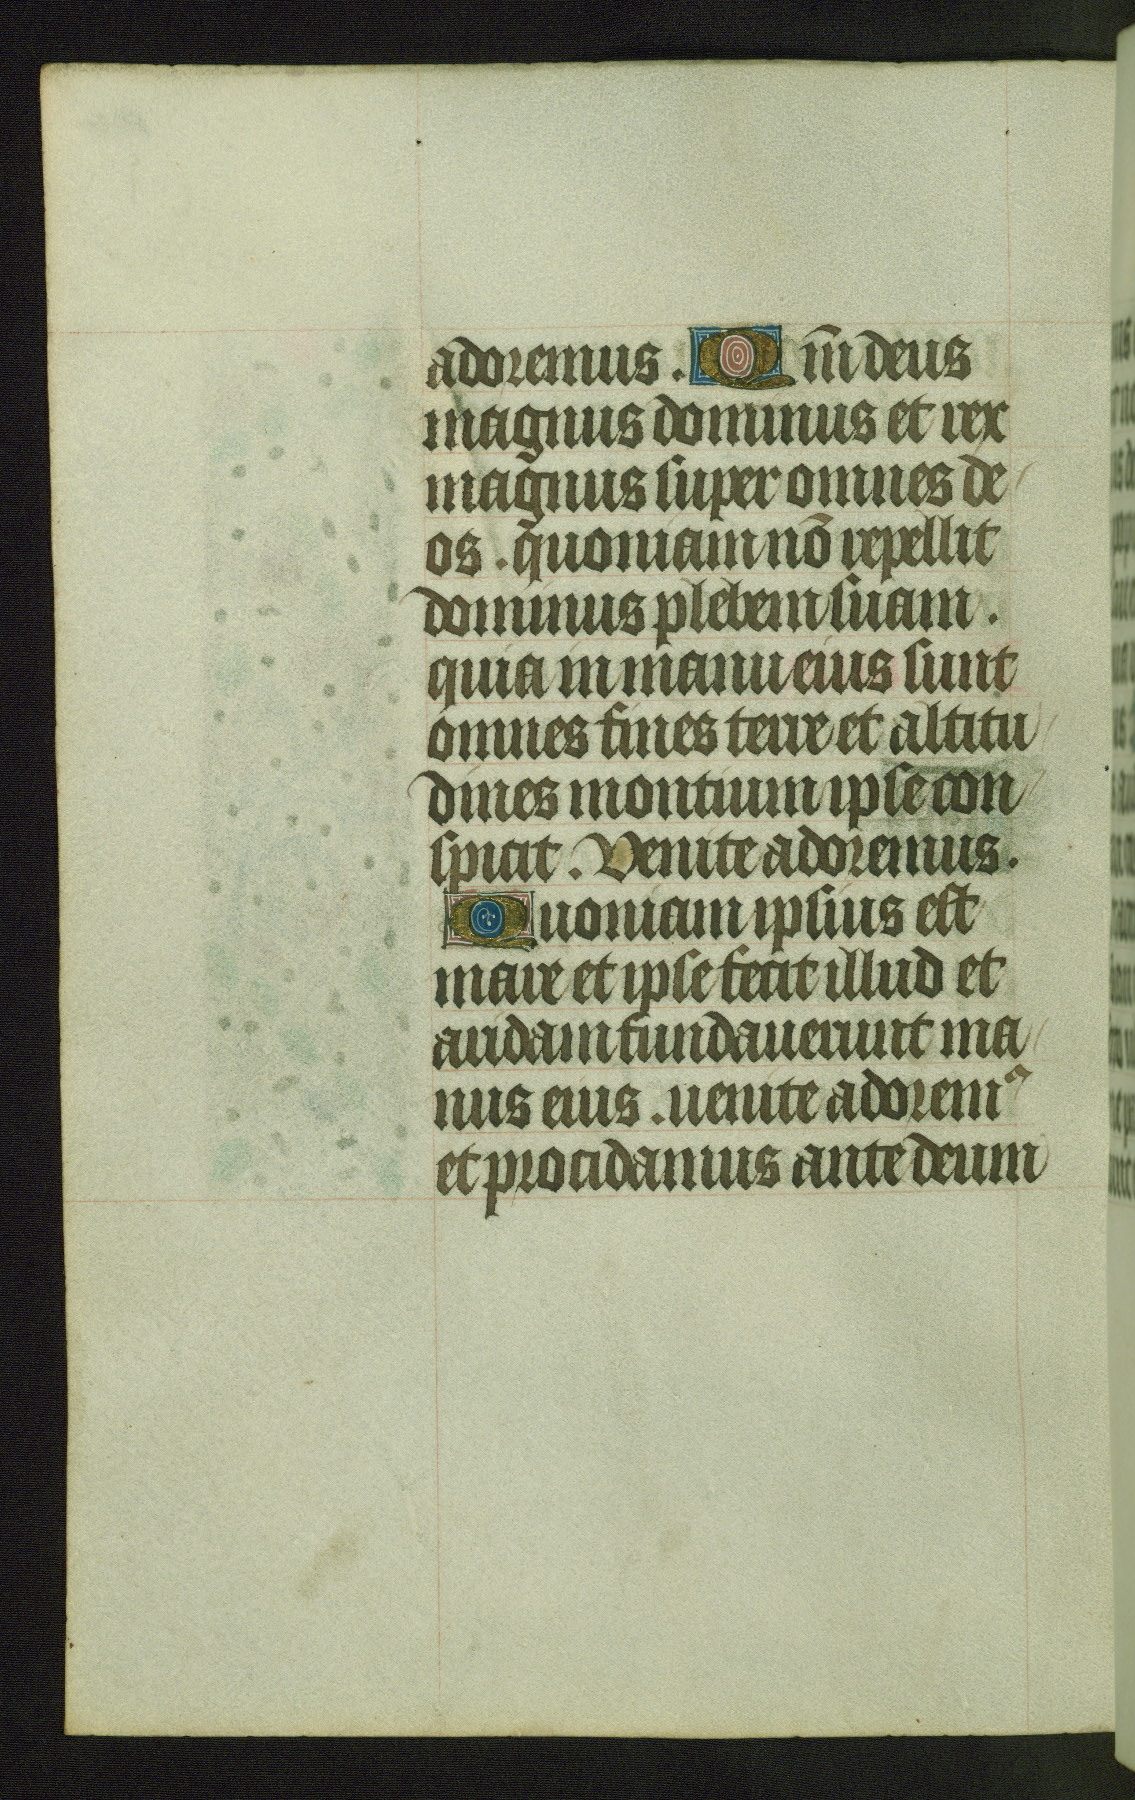 adoremus. Qm̅ deus
magnus dominus et rex
magnus super omnes de
os. quoniam no̅ repellit
dominus plebem suam.
quia in manu eius sunt
omnes fines terre et altitu
dines montium ipse con
spicit. Venite adoremus.
Quoniam ipsius est
mare et ipse fecit illud et
aridam fundauerunt ma
nus eius. uenite adoremꝰ
et procidamus ante deum